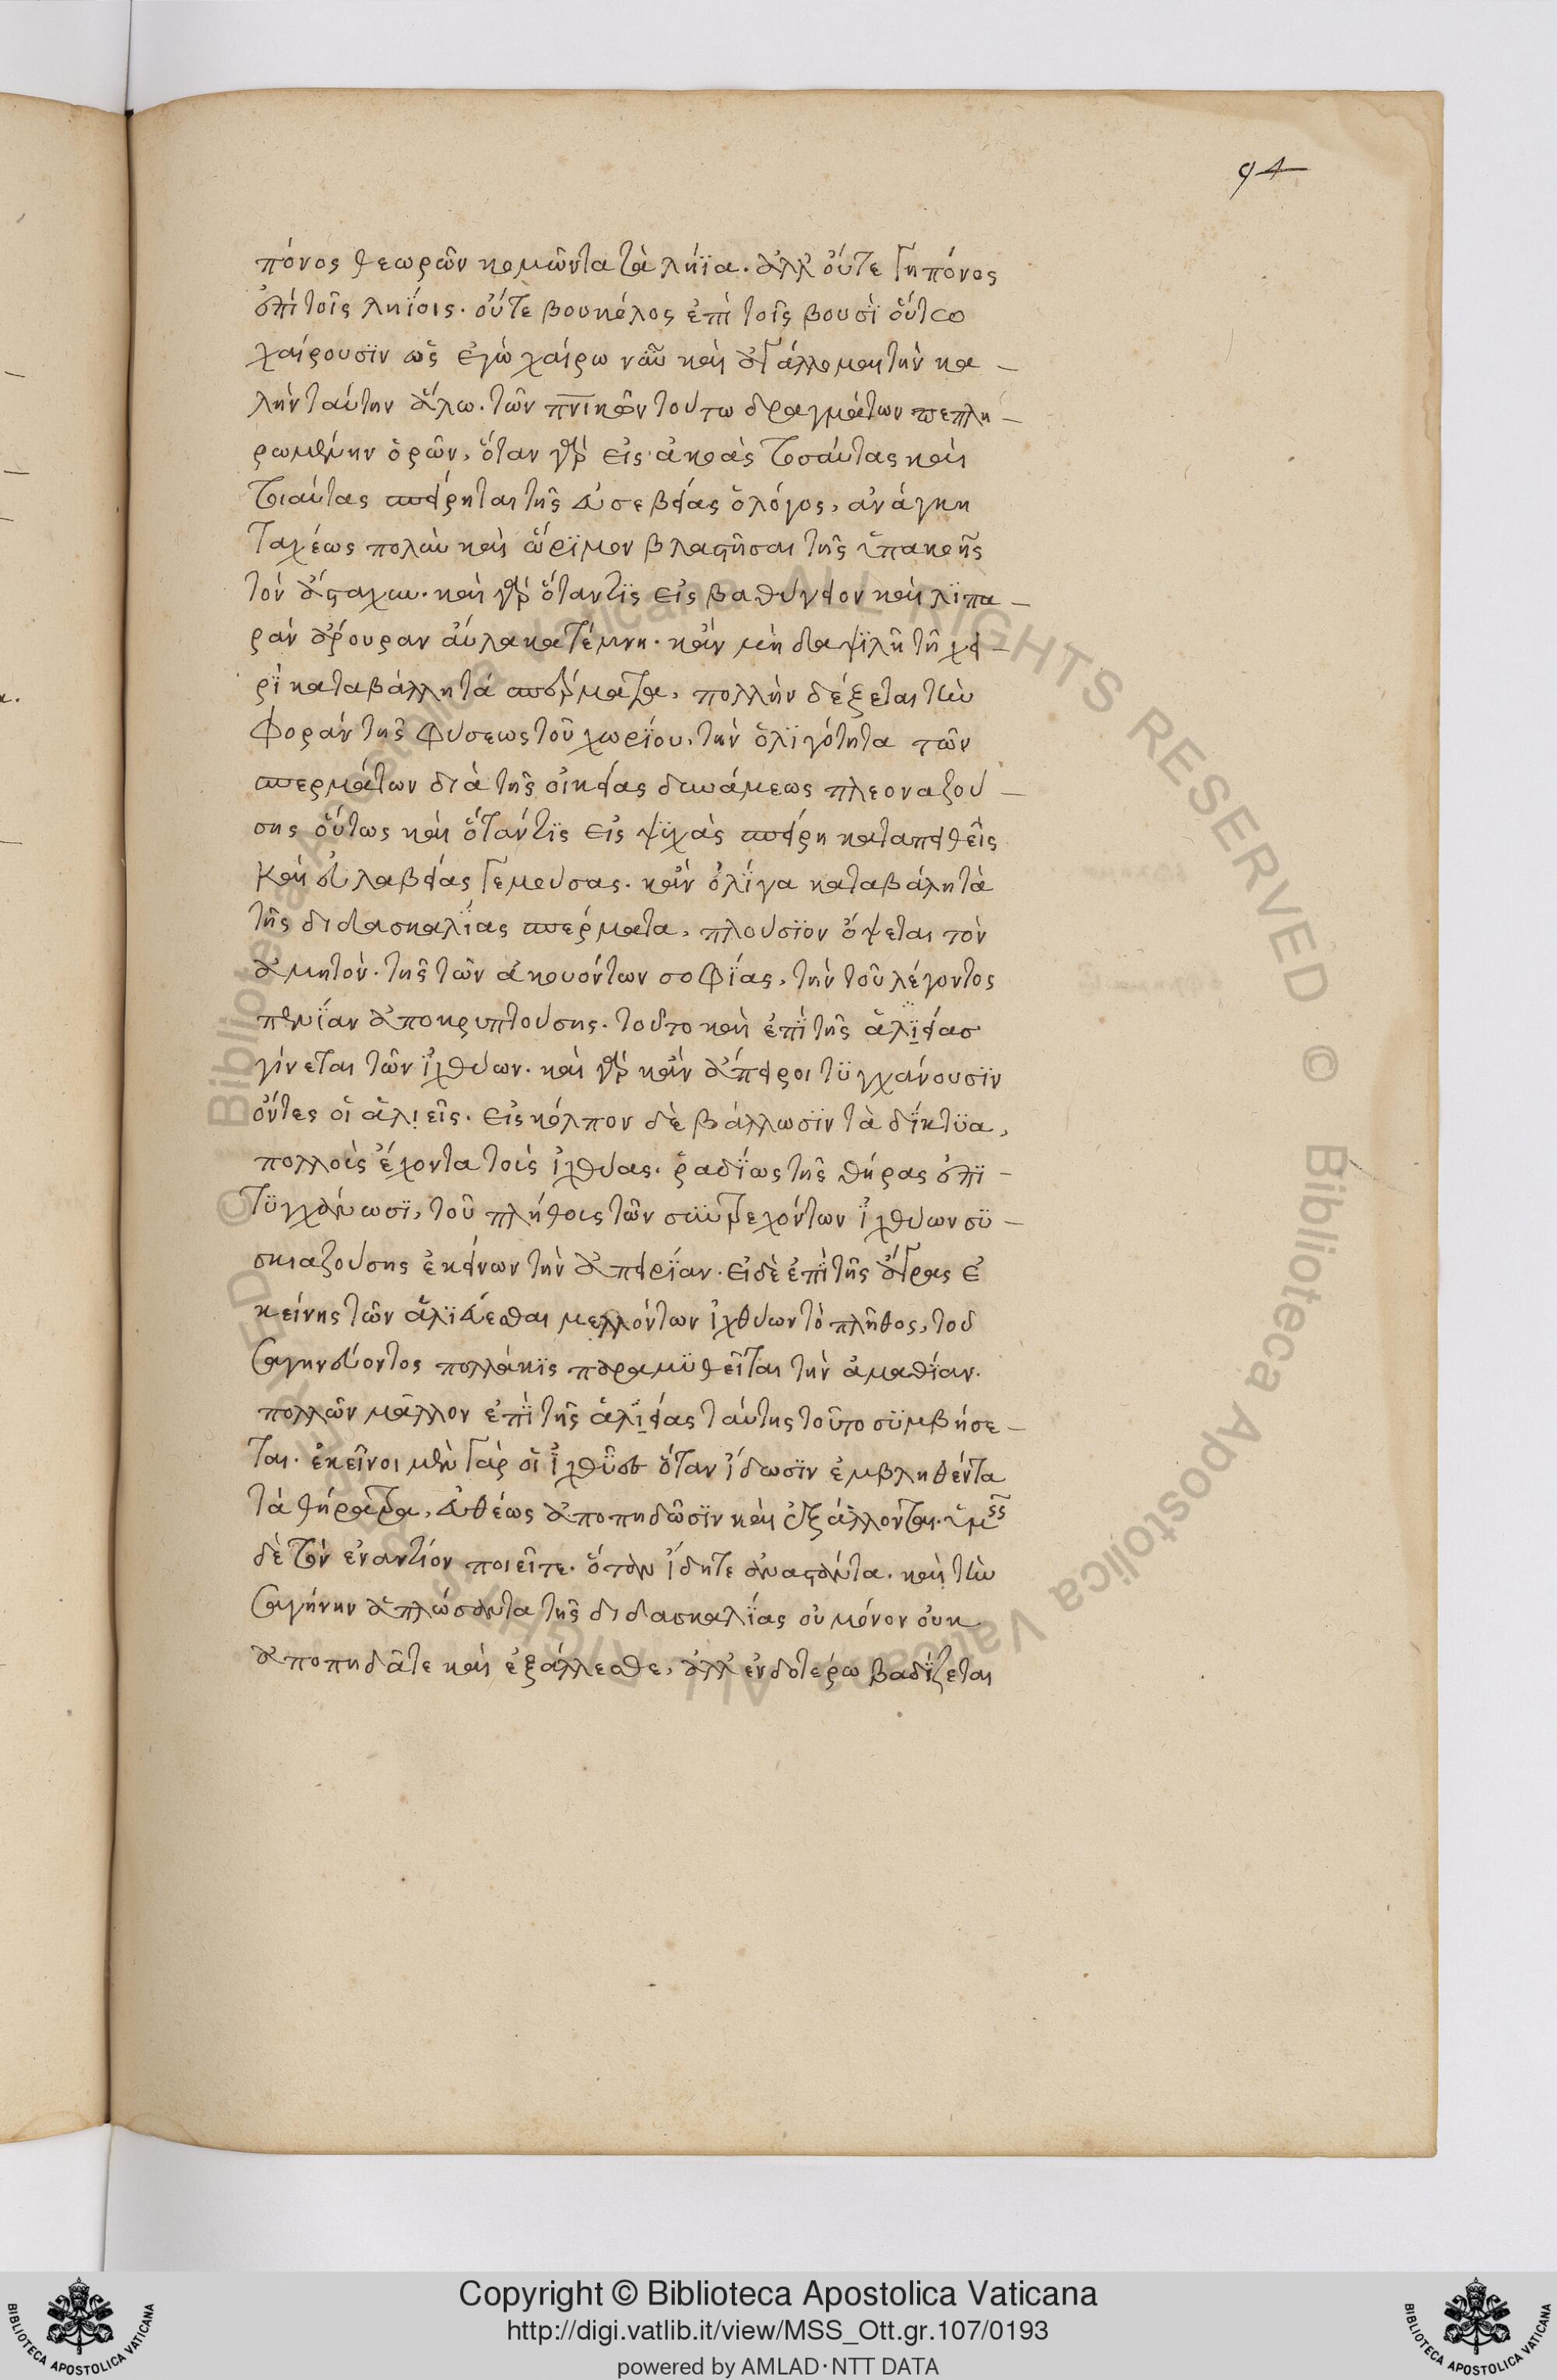 94
πόνος θεωρῶν κομῶντα τὰ λήϊα. ἀλλ' οὔτε γηπόνος
ἐπὶ τοῖς ληΐοις. οὔτε βουκόλος ἐπὶ τοῖς βουσὶ οὕτω
χαίρουσϊν ὡς ἐγὼ χαίρω νῦν καὶ ἀγάλλομαι τὴν κα –
λὴν ταύτην ἅλω. τῶν πνικῶν τούτω δραγμάτων πεπλη –
ρωμένην ὁρῶν, ὅταν γὰρ εἰς ἀκοὰς τοσαύτας καὶ
τοιαύτας σπείρηται τῆς εὐσεβείας ὁ λόγος, ἀνάγκη
ταχέως πολὺν καὶ ὥρϊμον βλαστῆσαι τῆς ὑπακοῆς
τὸν ἄσταχυν. καὶ γὰρ ὅταν τϊς εἰς βαθύγειον καὶ λϊπα –
ρὰν ἄρουραν αὔλακα τέμνη. κἂν μὴ δαψιλῆ τῆ χει –
ρῒ καταβάλλη τὰ σπέρματα, πολλὴν δέξεται τὴν
φορὰν τῆς φύσεως τοῦ χωρΐου, τὴν ὀλϊγότητα τῶν
σπερμάτων διὰ τῆς οἰκείας δυνάμεως πλεοναζού –
σης οὕτως καὶ ὅταν τϊς εἰς ψϋχὰς σπείρη καταπειθεῖς
καὶ εὐλαβείας γεμούσας. κἂν ὀλΐγα καταβάλη τὰ
τῆς διδασκαλΐας σπέρματα, πλούσϊον ὄψεται τὸν
ἀμητόν. τῆς τῶν ἀκουόντων σοφΐας, τὴν τοῦ λέγοντος
πενΐαν ἀποκρυπτούσης. τοῦτο καὶ ἐπῒ τῆς ἁλϊείασ
γίνεται τῶν ἰχθύων. καὶ γὰρ κἂν ἄπειροι τϋγχάνουσϊν
ὄντες οἱ ἁλιεῖς. εἰς κόλπον δὲ βάλλωσϊν τὰ δΐκτϋα,
πολλοὺς ἔχοντα τοὺς ἰχθύας. ῥαδΐως τῆς θήρας ἐπϊ –
τϋγχάνωσϊ, τοῦ πλήθους τῶν συντρεχόντων ἰχθύων σϋ –
σκιαζούσης ἐκείνων τὴν ἀπειρΐαν. εἰ δὲ ἐπῒ τῆς ἄγρας ἐ
κείνης τῶν ἁλϊεύεσθαι μελλόντων ἰχθύων τὸ πλῆθος, τοῦ
σαγηνεύοντος πολλάκϊς παραμϋθεῖται τὴν ἀμαθΐαν.
πολλῶν μᾶλλον ἐπῒ τῆς ἁλϊείας ταύτης τοῦτο σϋμβήσε –
ται. ἐκεῖνοι μὲν γὰρ οἱ ἰχθύες ὅταν ἴδωσϊν ἐμβληθέντα
τὰ θήρατρα, εὐθέως ἀποπηδῶσϊν καὶ ἐξάλλονται. ὑμεῖς
δὲ τὸν ἐναντίον ποιεῖτε. ὅταν ἴδητε ἀναστάντα. καὶ τὴν
σαγήνην ἁπλώσαντα τῆς διδασκαλΐας οὐ μόνον οὐκ
ἀποπηδᾶτε καὶ ἐξάλλεσθε, ἀλλ' ἐνδοτέρω βαδΐζεται
Copyright © Biblioteca Apostolica Vaticana
http://digi.vatlib.it/view/MSS_Ott.gr.107/0193
powered by AMLAD·NTT DATA